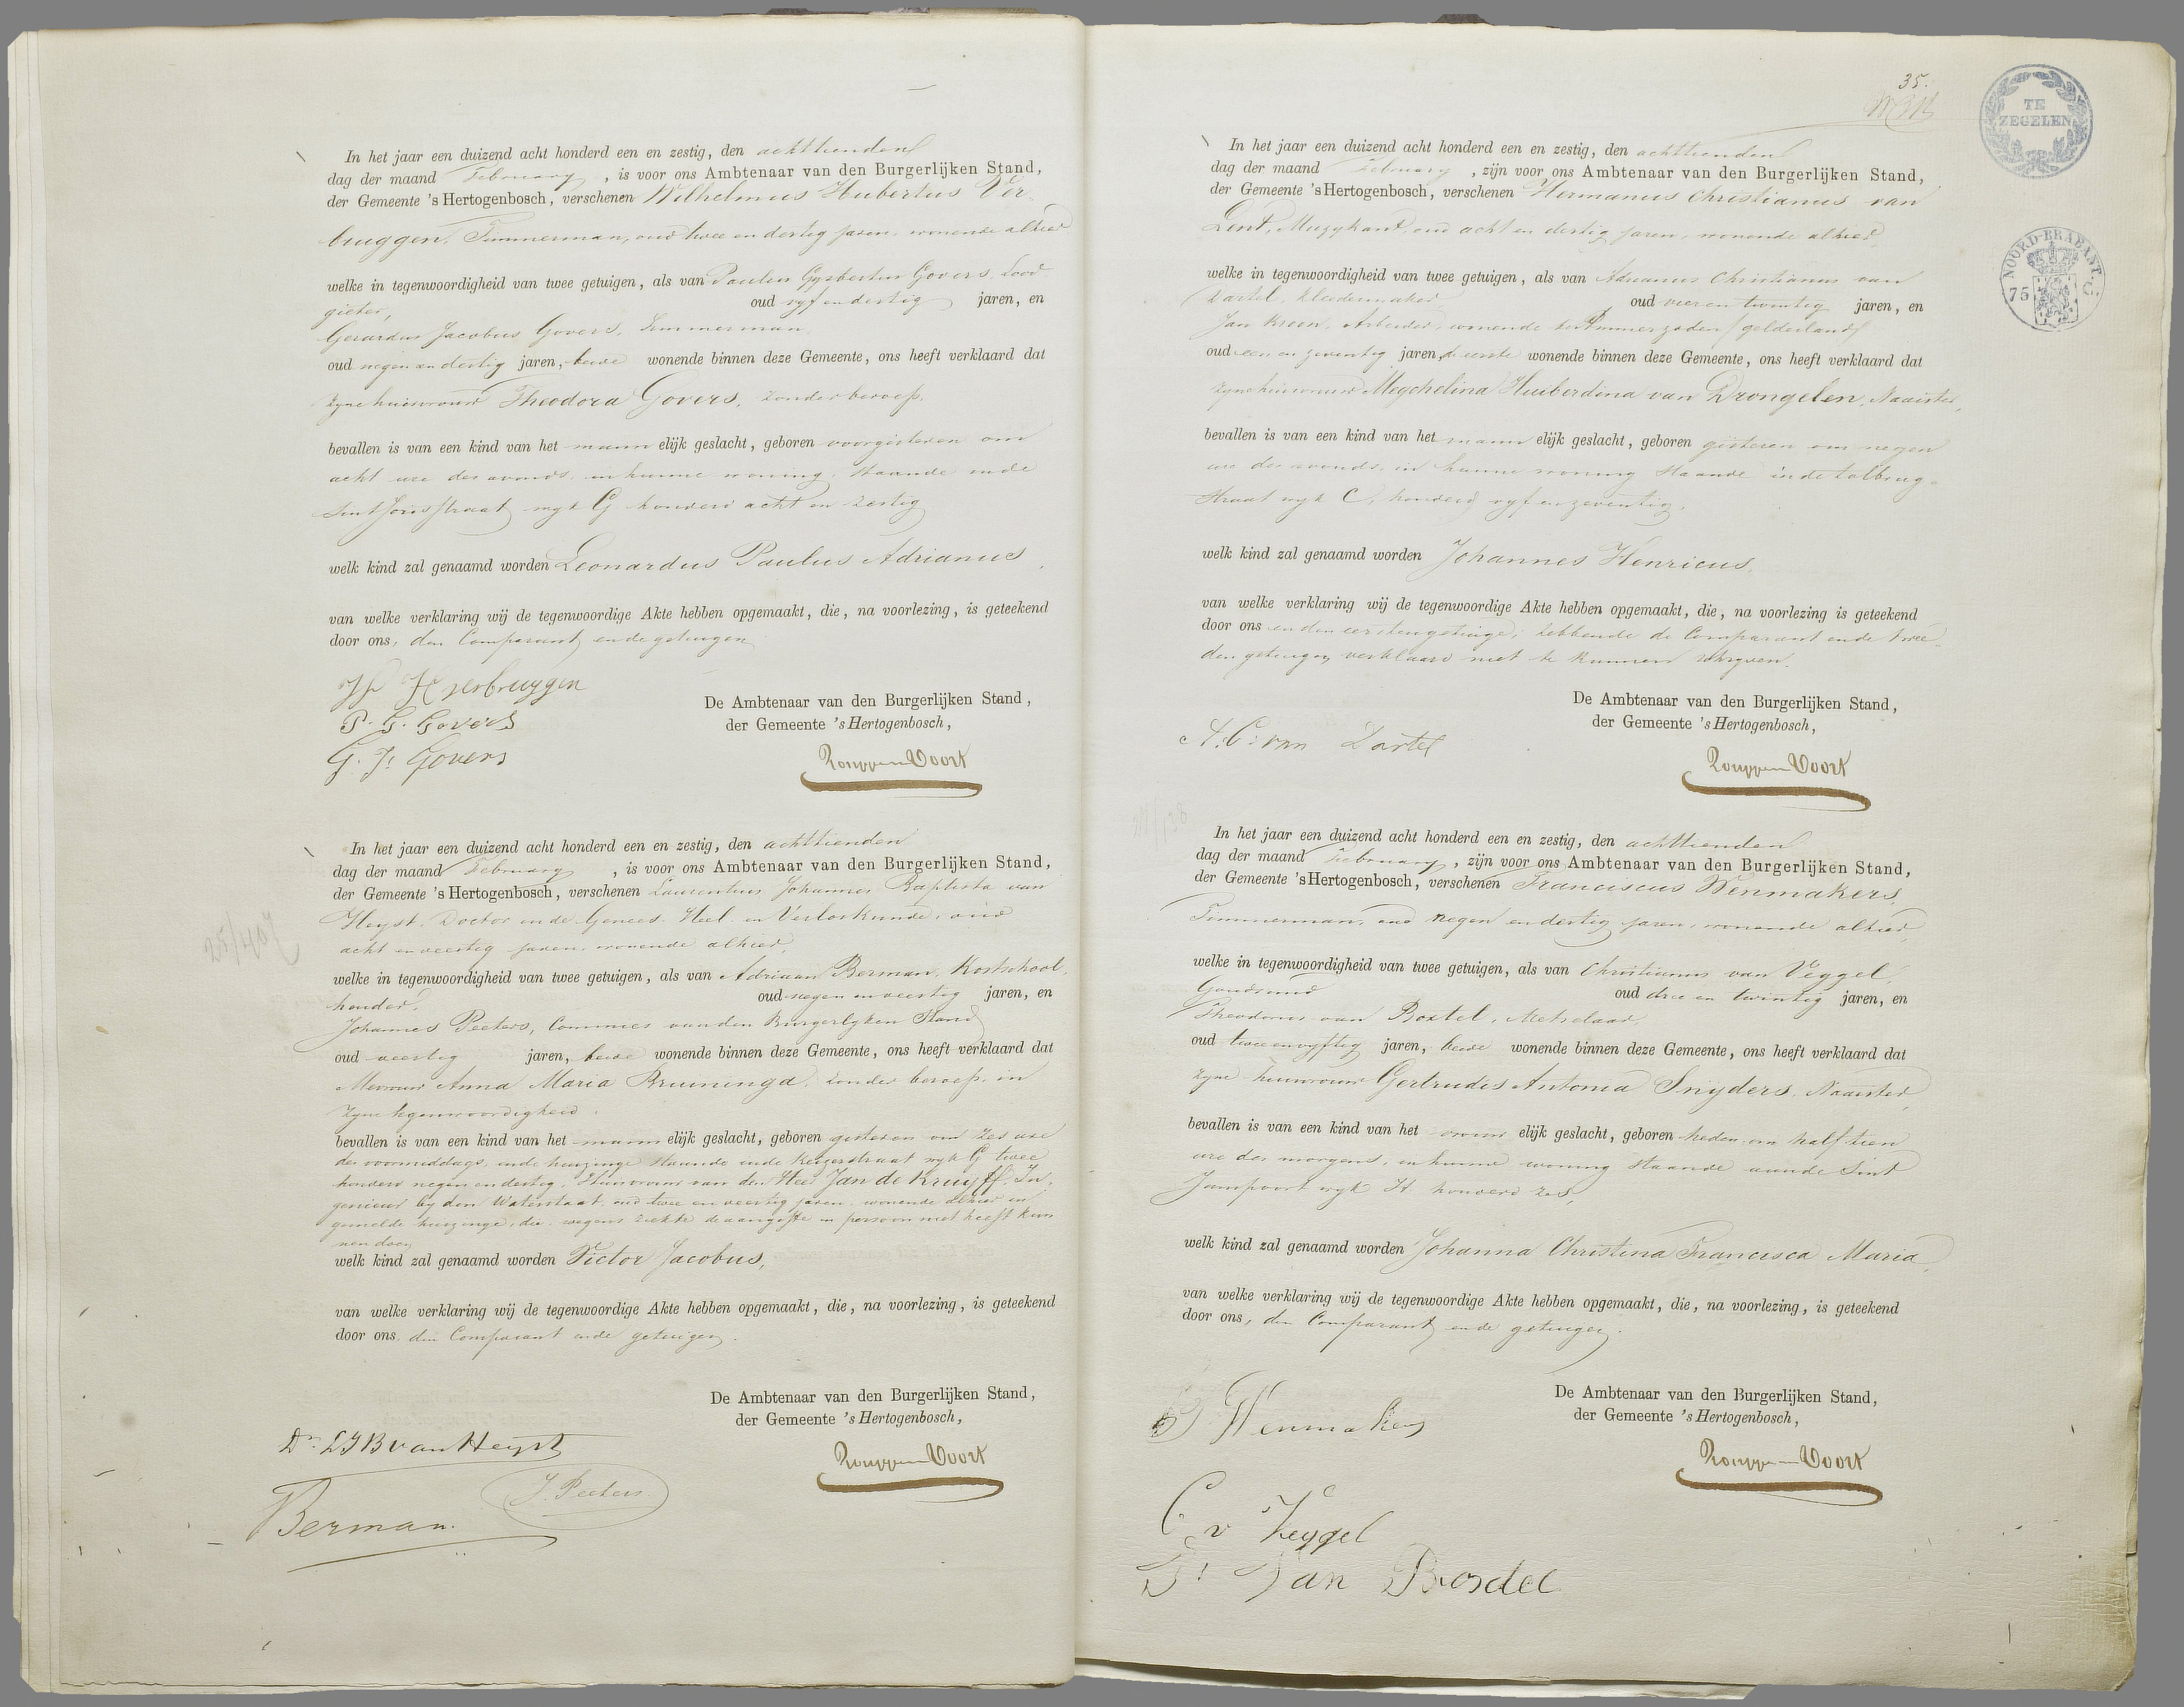 In het jaar een duizend acht honderd een en zestig, den achttienden
dag der maand February, is voor ons Ambtenaar van den Burgerlijken Stand,
der Gemeente 's Hertogenbosch, verschenen Wilhelmus Hubertus Ver-
bruggen, Timmerman, oud twee en dertig jaren, wonende alhier
welke in tegenwoordigheid van twee getuigen, als van Paulus Gysbertus Govers, Lood
gieter, oud vyf en dertig jaren, en
Gerardus Jacobus Govers, Timmerman
oud negen en dertig jaren, beide wonende binnen deze Gemeente, ons heeft verklaard dat
zyne huisvrouw Theodora Govers, zonder beroep,
bevallen is van een kind van het mann elijk geslacht, geboren voorgisteren om
acht ure des avonds in hunne woning staande in de
Sint Jorisstraat wyk G honderd acht en zestig
welk kind zal genaamd worden Leonardus Paulus Adrianus,
van welke verklaring wij de tegenwoordige Akte hebben opgemaakt, die, na voorlezing, is geteekend
door ons, den Comparant en de getuigen
W H Verbruggen
P. G. Govers
G. J. Govers
De Ambtenaar van den Burgerlijken Stand,
der Gemeente 's Hertogenbosch,
In het jaar een duizend acht honderd een en zestig, den achttienden
dag der maand February, is voor ons Ambtenaar van den Burgerlijken Stand,
der Gemeente 's Hertogenbosch, verschenen Laurentius Johannes Baptista van
Heyst, Doctor in de Genees- Heel- en Verloskunde, oud
acht en veertig jaren, wonende alhier,
welke in tegenwoordigheid van twee getuigen, als van Adriaan Berman, Kostschool
houder, oud negen en veertig jaren, en
Johannes Peeters, Commies van den Burgerlyken Stand
oud veertig jaren, beide wonende binnen deze Gemeente, ons heeft verklaard dat
Mevrouw Anna Maria Bruininga, zonder beroep, in
zyne tegenwoordigheid
bevallen is van een kind van het mann elijk geslacht, geboren gisteren om zes ure
des voormiddags, in de huizinge staande in de Keizerstraat wyk G twee
honderd negen en dertig, Huisvrouw van den Heer Jan de Kruyff, In-
genieur by den Waterstaat, oud twee en veertig jaren, wonende alhier in
gemelde huizinge, die wegens ziekte de aangifte in persoon niet heeft kun
nen doen
welk kind zal genaamd worden Victor Jacobus,
van welke verklaring wij de tegenwoordige Akte hebben opgemaakt, die, na voorlezing, is geteekend
door ons, den Comparant en de getuigen.
De Ambtenaar van den Burgerlijken Stand,
der Gemeente 's Hertogenbosch,
Dr. LJB van Heyst
J. Peeters
Berman.
35.
TE
ZEGELEN
NOORD-BRABANT.
75 C
In het jaar een duizend acht honderd een en zestig, den achttienden
dag der maand February, zijn voor ons Ambtenaar van den Burgerlijken Stand,
der Gemeente 's Hertogenbosch, verschenen Hermanus Christianus van
Lent, Muzykant, oud acht en dertig jaren, wonende alhier,
welke in tegenwoordigheid van twee getuigen, als van Adrianus Christianus van
Dartel, kleedermaker oud vier en twintig jaren, en
Jan Kroon, Arbeider, wonende te Ammerzoden / gelderland /
oud een en zeventig jaren, de eerste wonende binnen deze Gemeente, ons heeft verklaard dat
zyne huisvrouw Megchelina Huiberdina van Drongelen, Naaister,
bevallen is van een kind van het mann elijk geslacht, geboren gisteren om negen
ure des avonds, in hunne woning staande in de tolbrug-
straat wyk C, honderd vyf en zeventig,
welk kind zal genaamd worden Johannes Henricus,
van welke verklaring wij de tegenwoordige Akte hebben opgemaakt, die, na voorlezing is geteekend
door ons en den eersten getuige, hebbende de Comparant en de twee-
den getuigen verklaard niet te kunnen schryven.
De Ambtenaar van den Burgerlijken Stand,
der Gemeente 's Hertogenbosch,
A. C. van Dartel
In het jaar een duizend acht honderd een en zestig, den achttienden
dag der maand February, zijn voor ons Ambtenaar van den Burgerlijken Stand,
der Gemeente 's Hertogenbosch, verschenen Franciscus Wenmakers,
Timmerman, oud negen en dertig jaren, wonende alhier,
welke in tegenwoordigheid van twee getuigen, als van Christianus van Veggel,
Goudsmid oud drie en twintig jaren, en
Theodorus van Boxtel, Metselaar,
oud twee en vyftig jaren, beide wonende binnen deze Gemeente, ons heeft verklaard dat
zyne huisvrouw Gertrudis Antonia Snyders, Naaister,
bevallen is van een kind van het vrouw elijk geslacht, geboren heden om half tien
ure des morgens, in hunne woning staande aan de Sint
Janspoort wyk H honderd zes,
welk kind zal genaamd worden Johanna Christina Francisca Maria,
van welke verklaring wij de tegenwoordige Akte hebben opgemaakt, die, na voorlezing, is geteekend
door ons, den Comparant en de getuigen.
De Ambtenaar van den Burgerlijken Stand,
der Gemeente 's Hertogenbosch,
Wenmakers
C. v Veggel
Van Bosdel